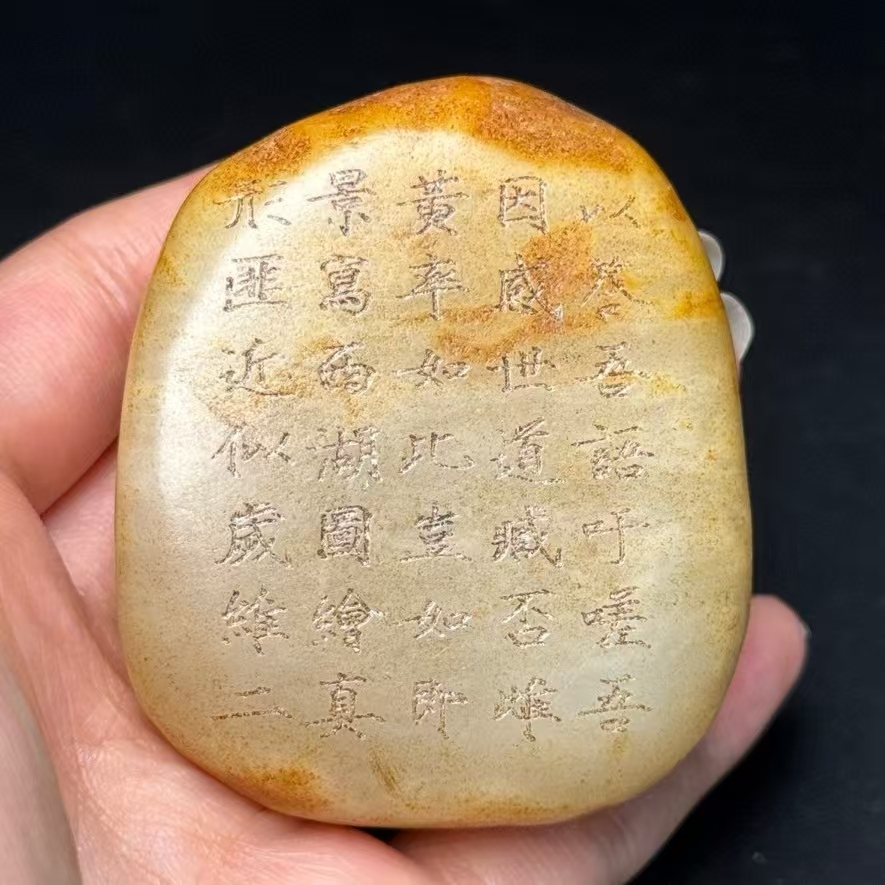 以發吾語吁嗟吾
因感世道臧否雌
黃率如此豈如即
景寫西湖圖繪真
形匪近似歲維二